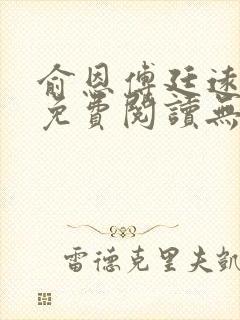 俞恩傅廷遠
免費閱讀無
雷德克里夫凱